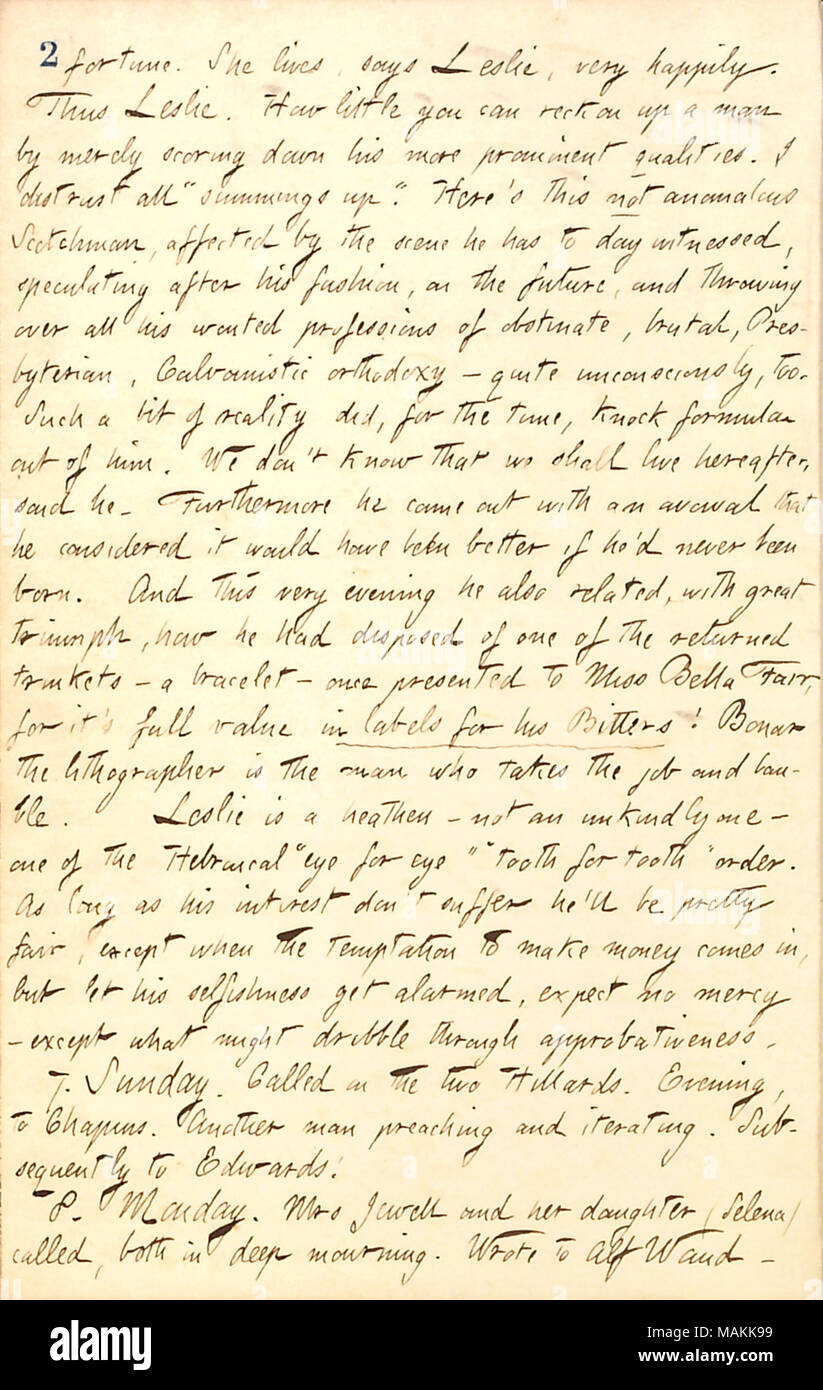 2 fortune. She lives, says Leslie, very happily.
Thus Leslie. How little you can reckon up a man
by merely scoring down his more prominent qualities. I
distrust all "summings up." Here's this not anomalous
Scotchman, affected by the scene he has to day witnessed,
speculating after his fashion, on the future, and throwing
over all his wonted professions of obstinate, brutal, Pres-
byterian, Calvanistic orthodoxy — quite unconsciously, too.
Such a bit of reality did, for the time, knock formula
out of him. We don't know that we shall live hereafter,
said he. Furthermore he came out with an avowal that
he considered it would have been better if he'd never been
born. And this very evening he also related, with great
triumph, how he had disposed of one of the returned
trinkets — a bracelet — once presented to Miss Bella Fair,
for it's full value in labels for his Bitters! Bonar
the lithographer is the man who takes the job and bau-
ble. Leslie is a heathen — not an unkindly one —
one of the Hebraical "eye for eye" "tooth for tooth" order.
As long as his interest don't suffer he'll be pretty
fair, except when the temptation to make money comes in,
but let his selfishness get alarmed, expect no mercy
— except what might dribble through approbativeness.
7. Sunday. Called on the two Hillards. Evening,
to Chapins. Another man preaching and iterating. Sub-
sequently to Edwards'.
8. Monday. Mrs Jewell and her daughter (Selena)
called, both in deep mourning. Wrote to Alf Waud —
alamy
Image ID: MAKK99
www.alamy.com